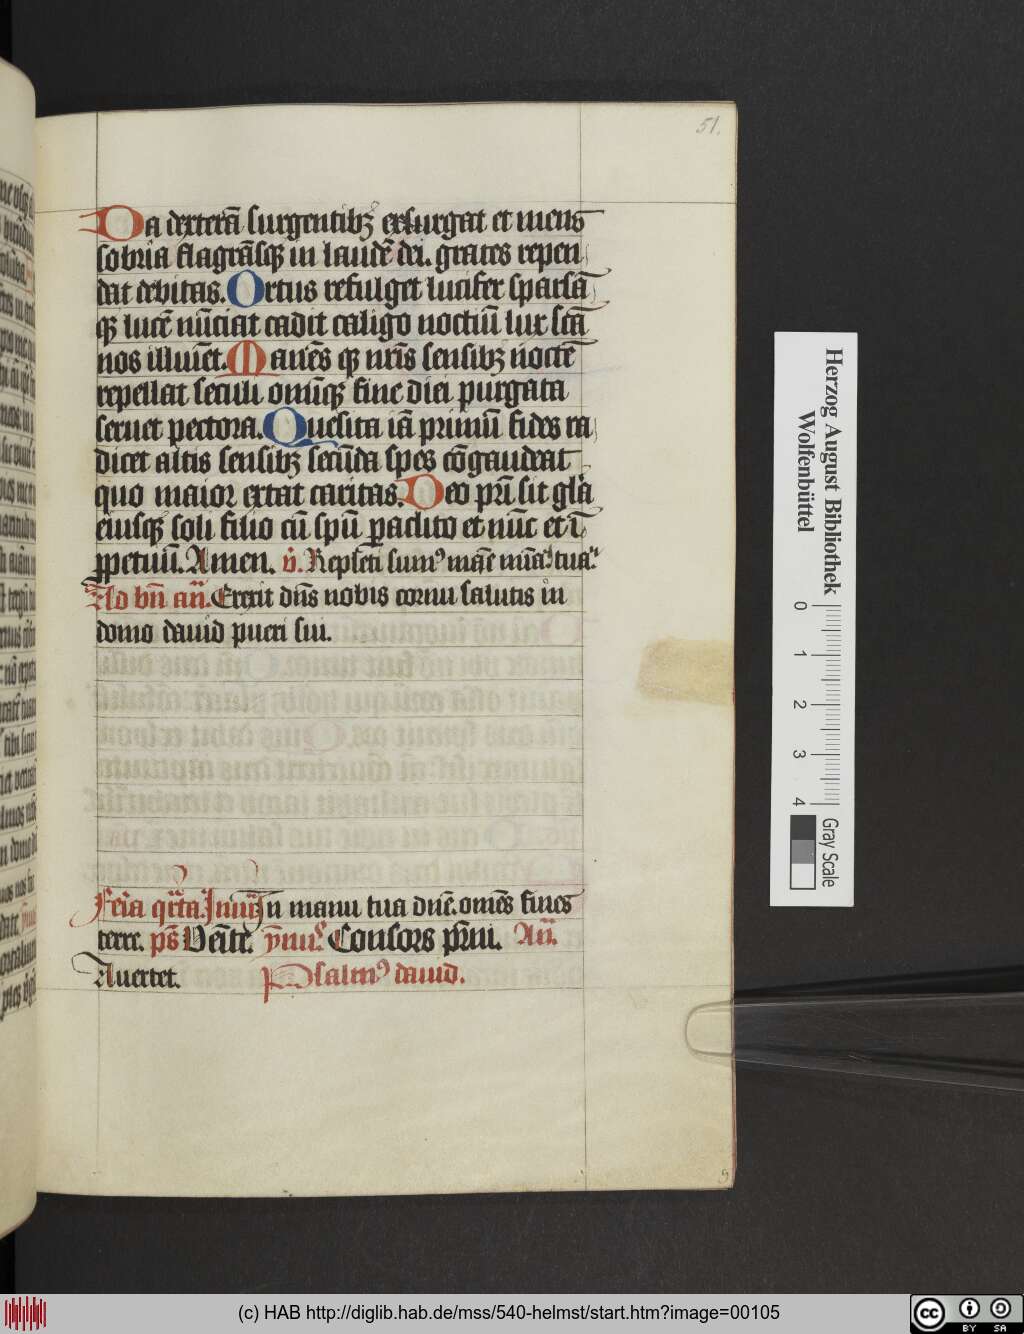 51.
Da dexterā surgentibꝫ exsurgat et mens
sobria flagrāsqꝫ in laudē dei. grates repen
dat debitas. Ortus refulget lucifer sparsā
qꝫ lucē nūciat cadit caligo noctiū lux scā
nos illuīet. Manēs qꝫ nr̄is sensibꝫ noctē
repellat seculi omīqꝫ fine diei purgata
seruet pectora. Quesita iā primū fides ra
dicet altis sensibꝫ secūda spes cōgaudeat
quo maior extat caritas. Deo pr̄i sit glā
eiusqꝫ soli filio cū spū paclito et nūc et ī
ꝑpetuū. Amen. v̓. Repleti sumꝰ māe mīa tua.
Ad bn̄ an̄. Erexit dn̄s nobis cornu salutis in
domo dauid pueri sui.
Feria qr̄ta. Inuit̄ In manu tua dn̄e. omēs fines
terre. ps̄ Venīte. ymꝰ. Consors pr̄ni. An̄.
Auertet. Psalmꝰ dauid.
Herzog August Bibliothek
Wolfenbüttel
0 1 2 3 4
Gray Scale
(c) HAB http://diglib.hab.de/mss/540-helmst/start.htm?image=00105
cc BY SA